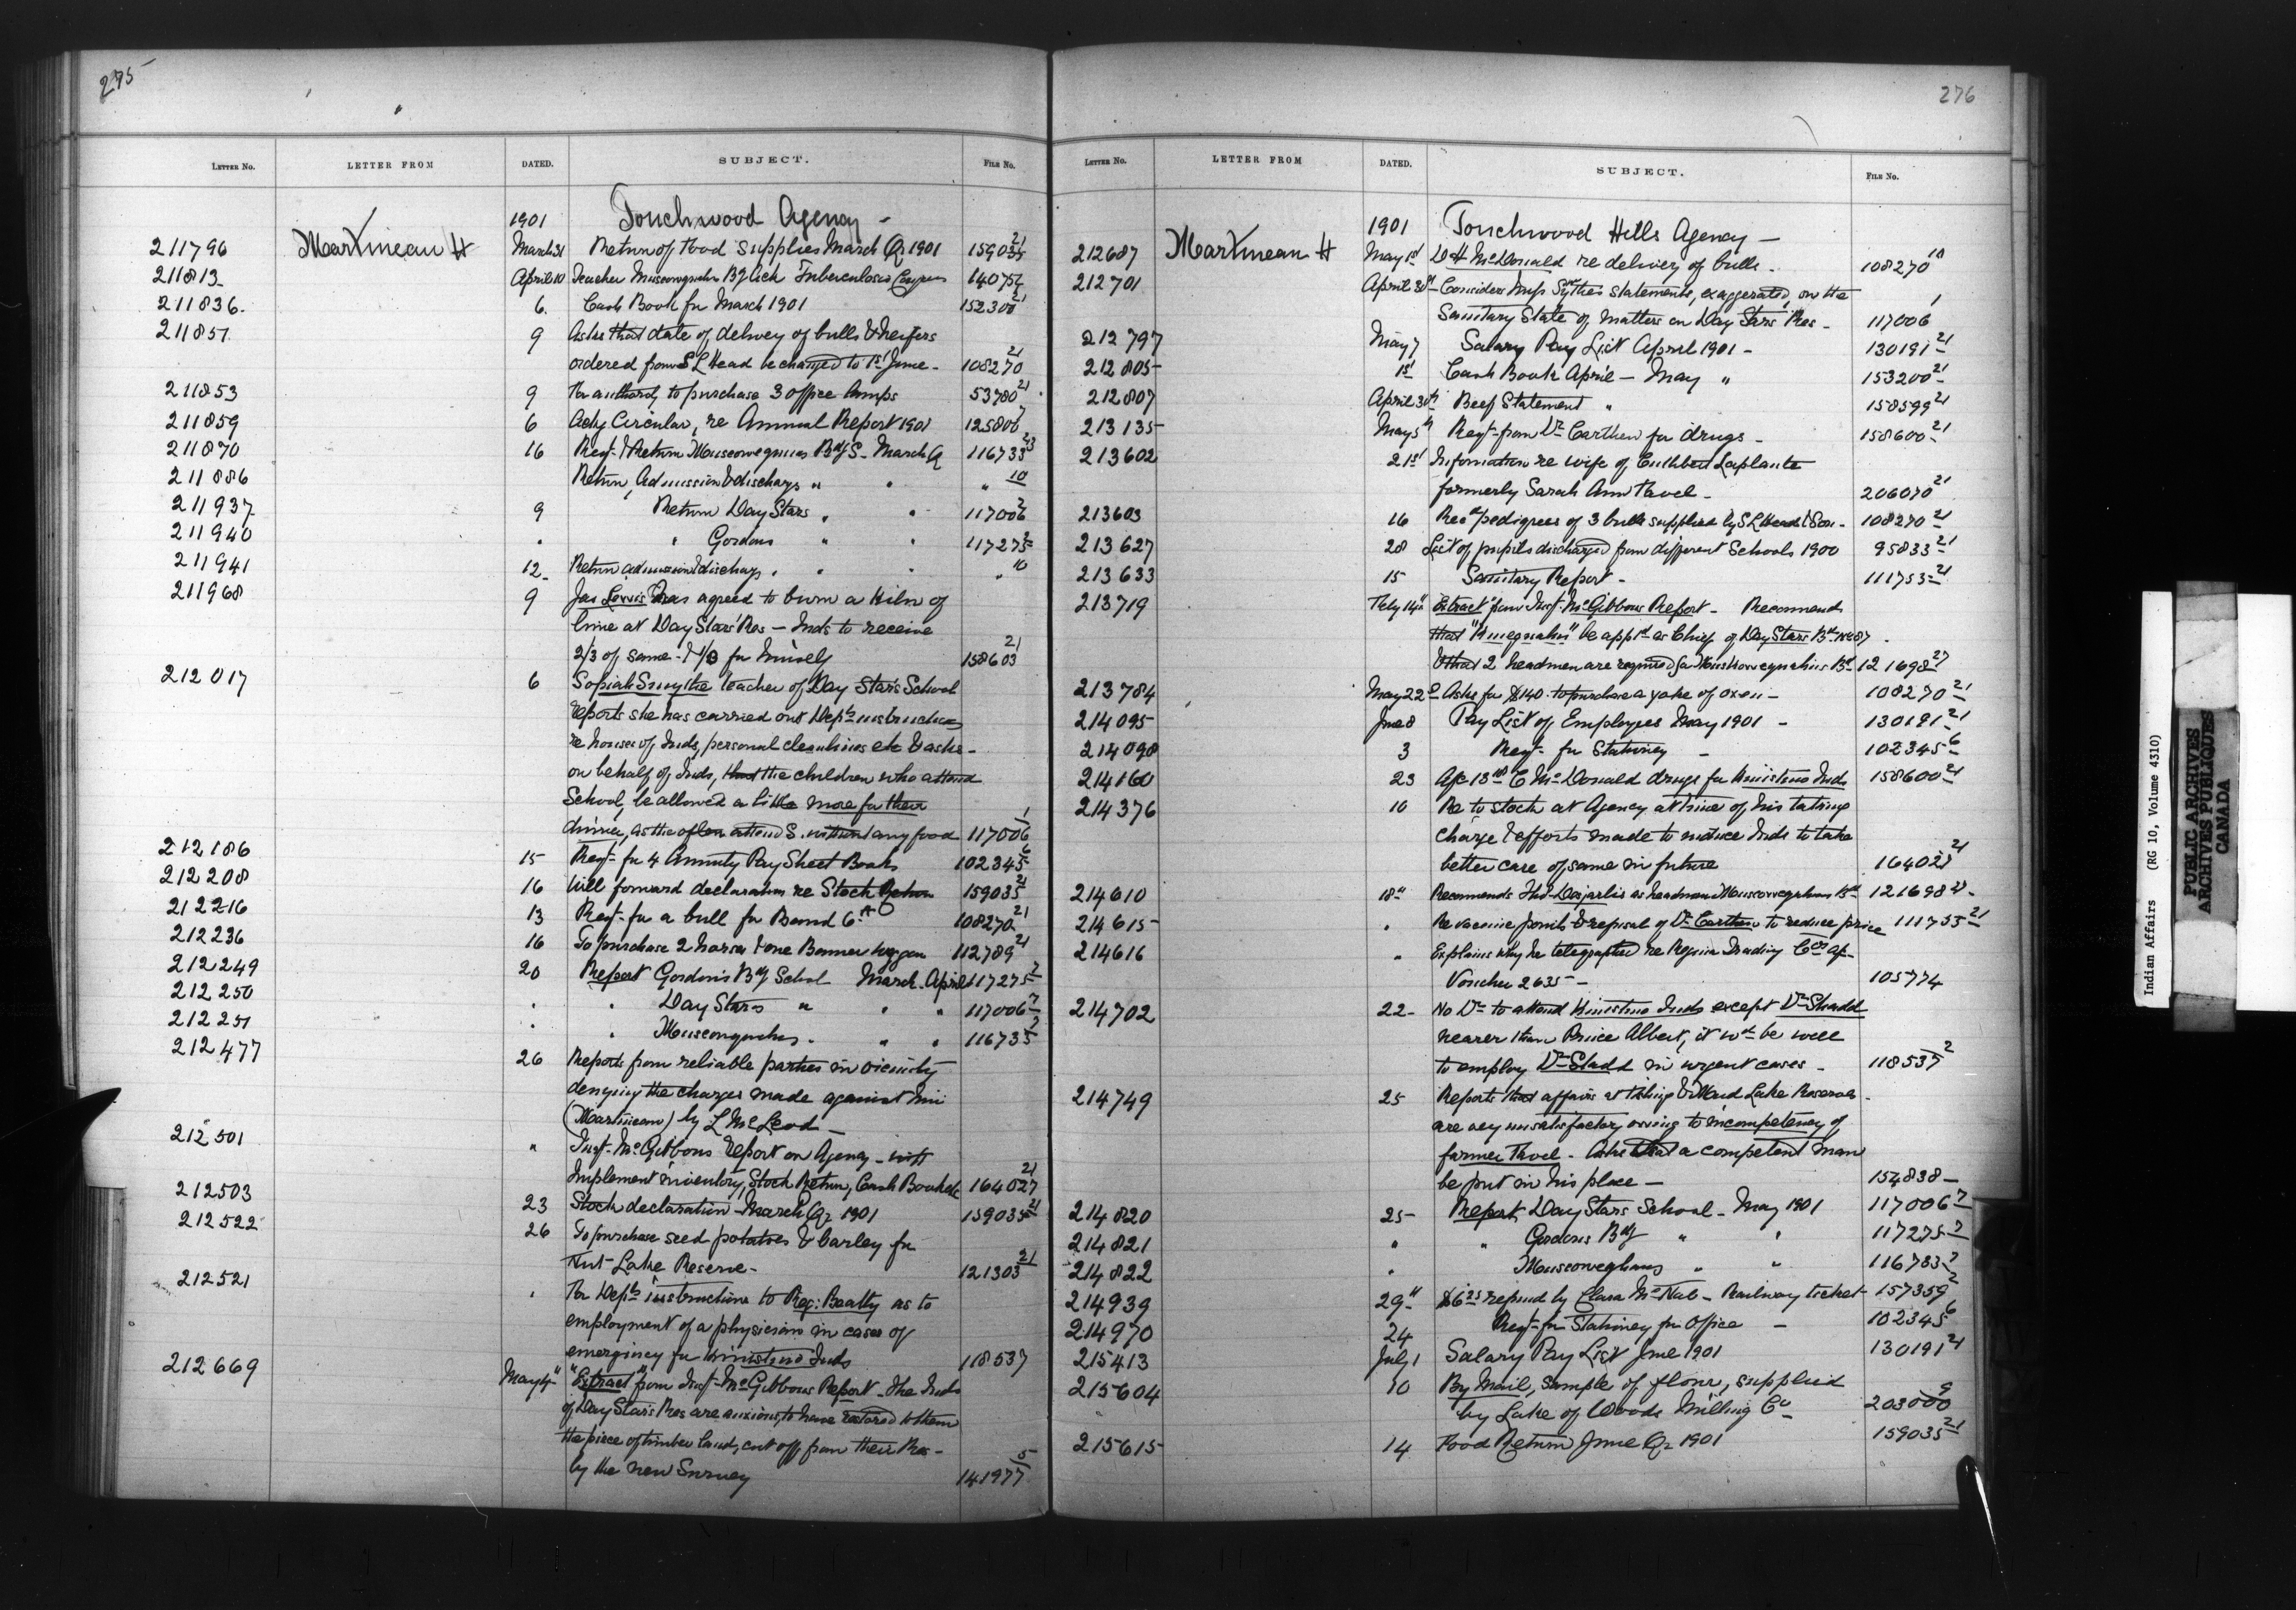 275
LETTER NO. LETTER FROM DATED. SUBJECT. FILE NO.
1901 Touchwood Agency -
211796 Martineau H March 31 Return of Food Supplies March Qr 1901 159035 21
211813 April 10 Teacher Muscowquahn Bg lick Tuberculosis 140754
211836. 6. Cash Book for March 1901 152300 21
211851 9 Asks that date of delivey of bulls & heifers
ordered from S L Head be changed to 1st June - 108270 21
211853 9 For authority to purchase 3 office lamps 53780 21
211859 6 Ackg Circular, re Annual Report 1901 125806 7
211870 16 Reqt & Return Muscowequas Bdg S - March Q 116733 23
211886 Return, Admission & discharge " " " 10
211937 9 Return Day Stars " " 117006 2
211940 " " Gordons " " 117275 2
211941 12 Return admission & discharge " " " " 10
211968 9 Jas Lewis has agreed to burn a Kiln of
lime at Day Stars' Res - Inds to receive
2/3 of same - & 1/3 for himself 158603 21
212017 6 Sopiah Smythe teacher of Day Star's School
reports she has carried out Depts instructions
re houses of Inds, personal cleanliness etc & asks -
on behalf of Inds, that the children who attend
School, be allowed a little more for their
dinner, as the often attend S. without any food 117006 1
212186 15 Reqt for 4 Annuity Pay Sheet Books 102345 6
212208 16 Will forward declaration re Stock Return 159035 21
212216 13 Reqt for a bull for Band 6 A 108270 21
212236 16 To purchase 2 horses & one Banner waggon 112789 21
212249 20 Report Gordon's Bdg School March - April 117275 7
212250 " " Day Stars " " " 117006 7
212251 " " Muscowquahns " " " 116733 7
212477 26 Reports from reliable parties in vicinity
denying the charges made against him
(Martineau) by L McLeod -
212501 " Inst. McGibbons report on Agency - with
Implement inventory, Stock Return, Cash Book etc 164027 21
212503 23 Stock declaration - March Qr 1901 159035 21
212522 26 To purchase seed potatoes & barley for
Nut Lake Reserve - 121303 21
212521 " For Depts instructions to Reg: Beatty as to
employment of a physician in cases of
emergincy for Kinistino Inds 118537
212669 May 4" "Extract" from Inst. McGibbons Report - the Inds
of Day Star's Res are anxious to have restored to them
the piece of timber land, cut off from their Res -
by the new Survey 141977 5
276
LETTER NO. LETTER FROM DATED. SUBJECT. FILE NO.
1901 Touchwood Hills Agency -
212687 Martineau H May 1st D H McDonald re delivey of bulls - 108270 18
212701 April 30th Considers Miss Sythes statements, exaggerated, on the
Sanitary State of matters on Day Stars' Res - 117006 1
212797 May 7 Salary Pay List April 1901 - 130191 21
212805 1st Cash Book April - May " 153200 21
212807 April 30th Beef Statement " 158599 21
213135 May 5th Reqt from Dr Carthew for drugs - 158600 21
213602 21st Information re wife of Cuthbert Laplante
formerly Sarah Ann Favel - 206070 21
213603 16 Recd pedigrees of 3 bulls supplied by S L Head & Son - 108270 21
213627 28 List of pupils discharged from different Schools 1900 95833 21
213633 15 Sanitary Report - 111753 21
213719 Feby 14" "Extract" from Inst. McGibbons Report - Recommends
that "Kinequahn" be appd as Chief of Day Stars Bd No 87
& that 2 headmen are required for Muskowequahns Bd 121698 27
213784 May 22d Asks for $140 - to purchase a yoke of oxen - 108270 21
214095 June 8 Pay List of Employees May 1901 - 130191 21
214098 3 Reqt for Stationey - 102345 6
214160 23 C McDonald drugs for Kinistino Inds 158600 21
214376 10 Re to stock at Agency at time of his taking
charge & efforts made to induce Inds to take
better care of same in future 164027 21
214610 18" Recommends Desjarlis as headman Muscowequahns Bd 121698 27
214615 " Re vaccine points & refusal of Dr Carthew to reduce price 111753 21
214616 " Explains why he telegraphed re Regina Trading Cos
Voucher 2635 - 105774
214702 22 - No Dr to attend Kinistino Inds except Dr Shadd
nearer than Prince Albert, it wd be well
to employ Dr Shadd in urgent cases - 118537 2
214749 25 Reports that affairs at Fishing & Maud Lake Reserves -
are very unsatisfactory owing to incompetency of
farmer Favel - Asks that a competent man
be put in his place - 154838 -
214820 25 - Report Day Stars School - May 1901 117006 7
214821 " " Gordons Bdg " " 117275 7
214822 " Muscoweghans " " 116733 7
214939 29" $6.25 refund by Clara McNab - Railway ticket 157359 2
214970 24 Reqt for Stationey for Office - 102345 6
215413 July 1 Salary Pay List June 1901 130191 21
215604 10 By Mail, sample of flour, supplied
by Lake of Woods Milling Co 203000 9
215615 14 Food Return June Qr 1901 159035 21
Indian Affairs (RG 10, Volume 4310)
PUBLIC ARCHIVES
ARCHIVES PUBLIQUES
CANADA